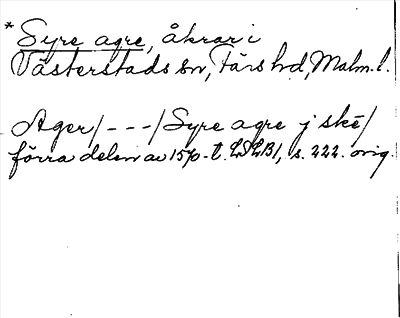 * Syre agre, åkrar i
Västerstads sn, Färs hd, Malm. l.
Ager / - - - / Syre agre j skē /
förra delen av 1570-t. LSLB1, s. 222. orig.